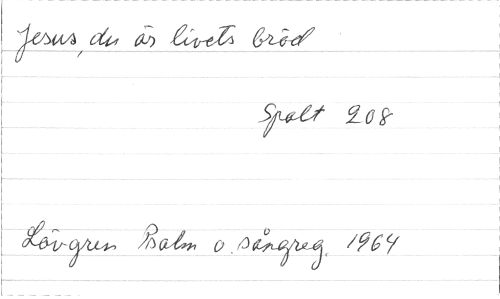 Jesus, du är livets bröd
Spalt 208
Lövgren Psalm o. sångreg. 1964